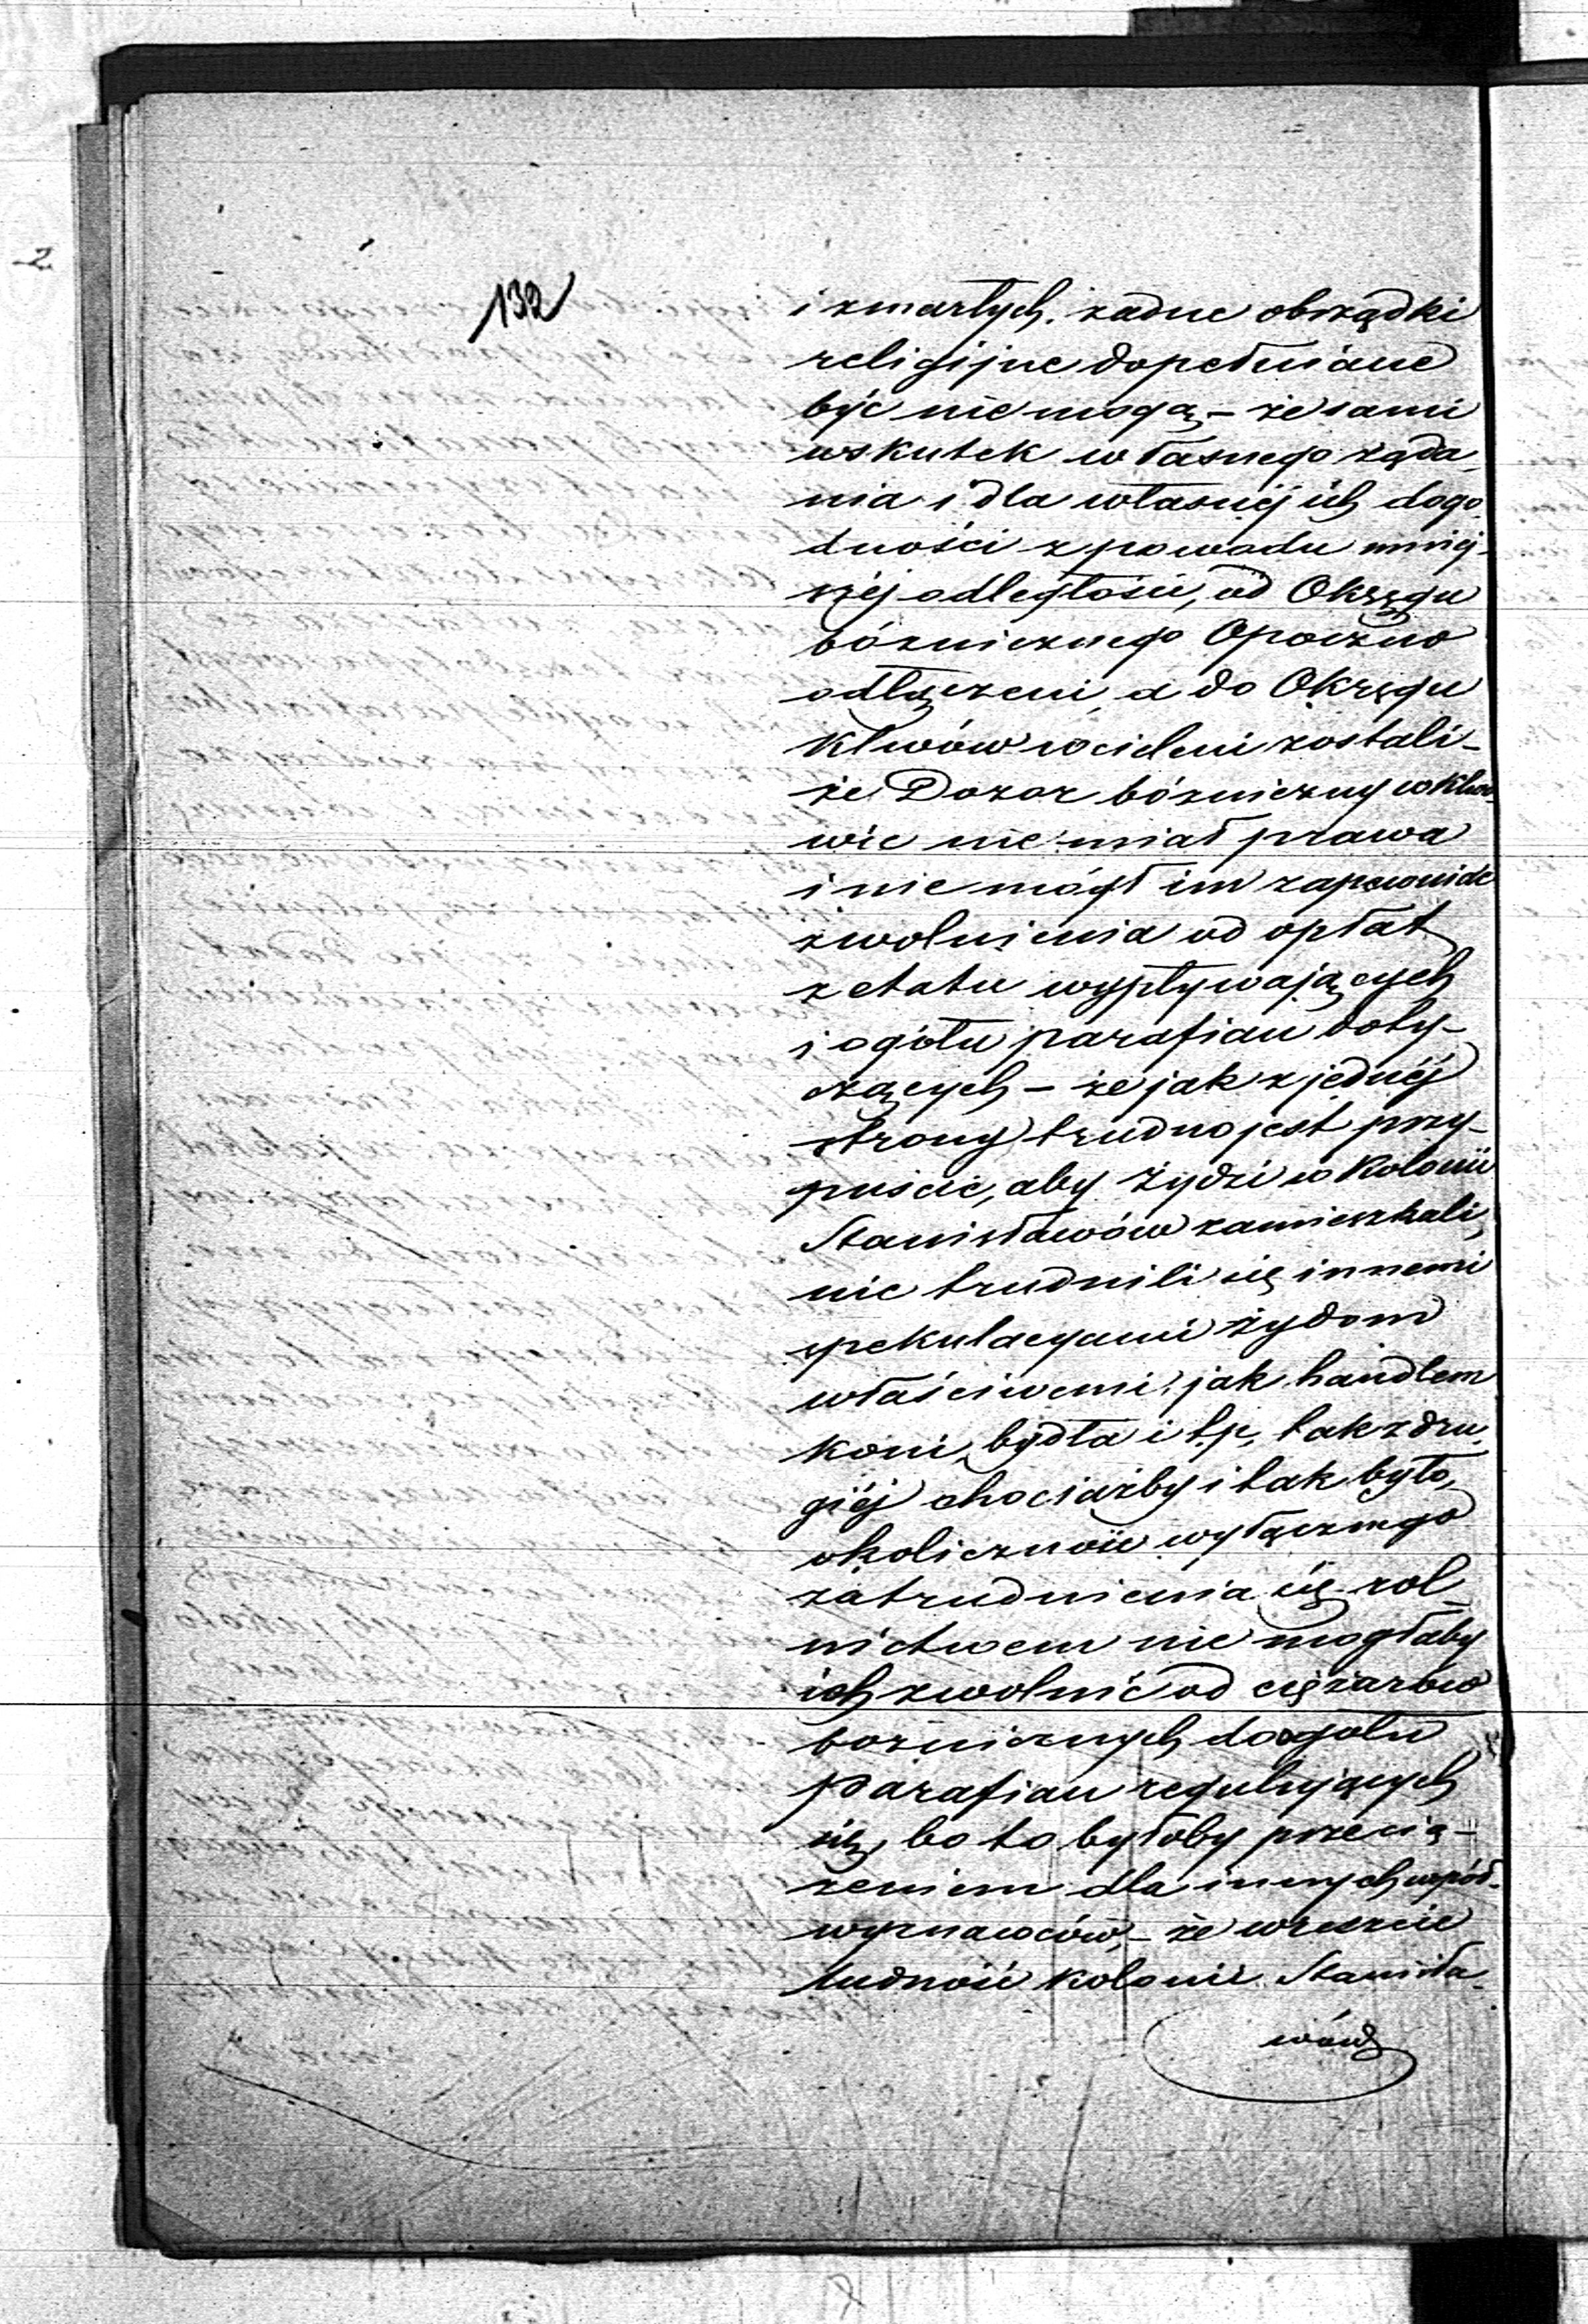 2
132
i zmarłych. żadne obrządki
religijne dopełniane
być nie mogą – że sami
wskutek własnego żąda
nia i dla własnéj ich dogo
dności z powodu mniéj-
széj odległości, od Okręgu
bóżniczego Opoczno
odłączeni, a do Okręgu
Klwów wcieleni zostali –
że Dozor bóżniczny w Klwo-
wie nie miał prawa
i nie mógł im zapewnić
zwolnienia od opłat
z etatu wypływających
i ogółu parafian doty-
czących – że jak z jednéj
strony trudno jest przy-
puścić, aby Żydzi w Kolonii
Stanisławów zamieszkali,
nie trudnili się innemi
spekulacyami żydom
właściwemi, jak handlem
koni, bydła i t.p, tak z dru
giéj chociażby i tak było,
okoliczność wyłącznego
zatrudnienia się rol
nictwem nie mogłaby
ich zwolnić od ciężarów
bożnicznych do ogółu
parafian regulujących
się, bo to byłoby przecią-
żeniem dla innych wspól-
wyznawców, – że wreszcie
ludność kolonii Stanisła-
wów